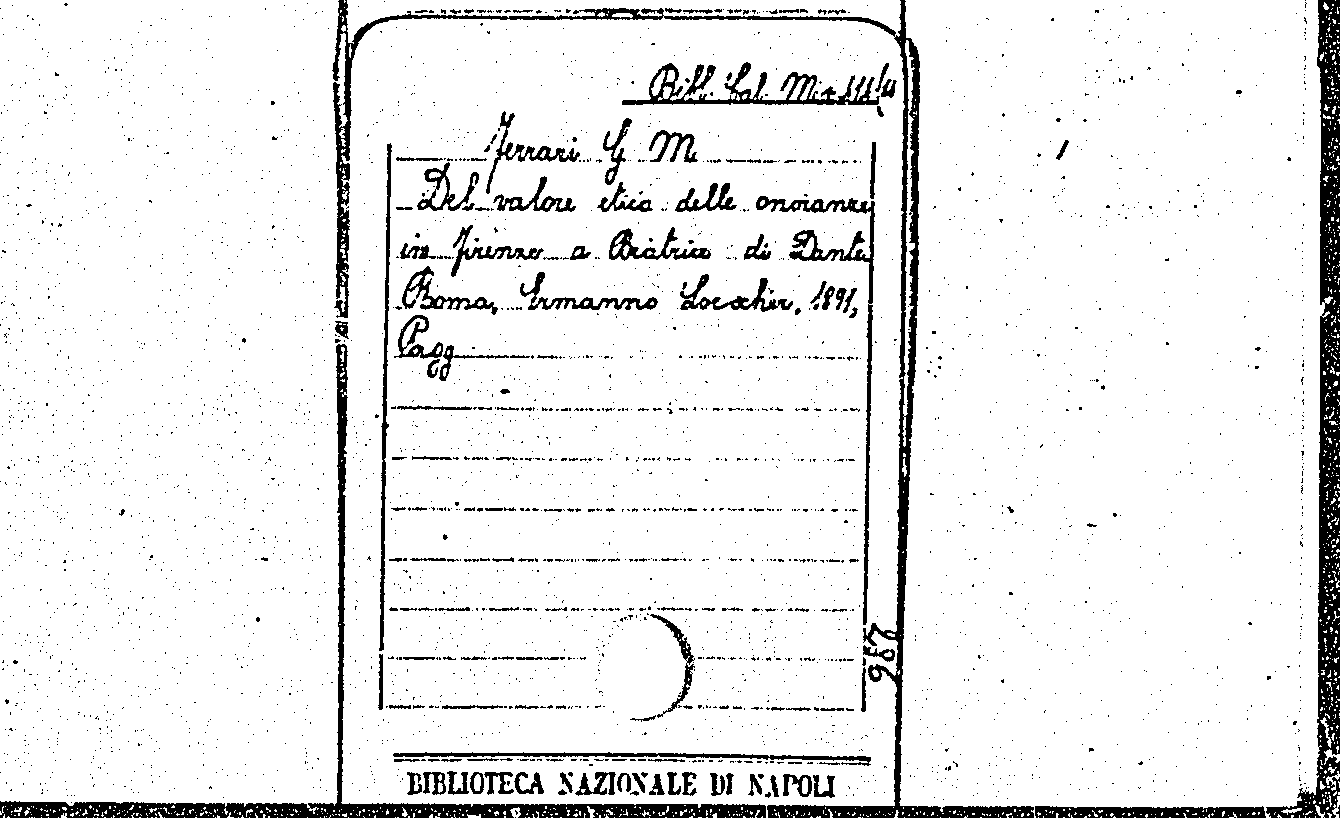 Bibl. Cal. Mis
Ferrari G M
Del valore etico delle onoranze
in Firenze a Beatrice di Dante
Roma, Ermanno Loescher, 1891,
Pagg
BIBLIOTECA NAZIONALE DI NAPOLI